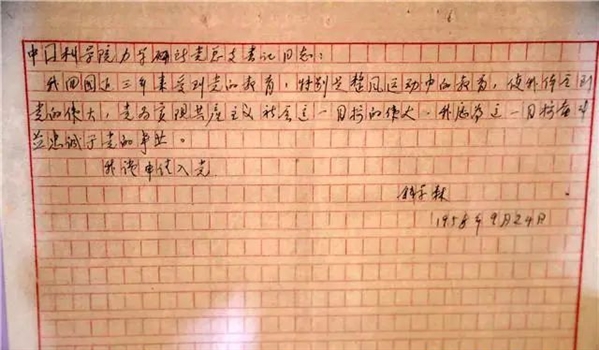 中国科学院力学研所党总支书记同志:
我回国近三年来受到党的教育,特别是整风运动中的教育,使我体会到
党的伟大,党为实现共产主义社会这一目标的伟大。我愿为这一目标奋斗
并忠诚于党的事业。
我谨申请入党
钱学森
1958年9月24日